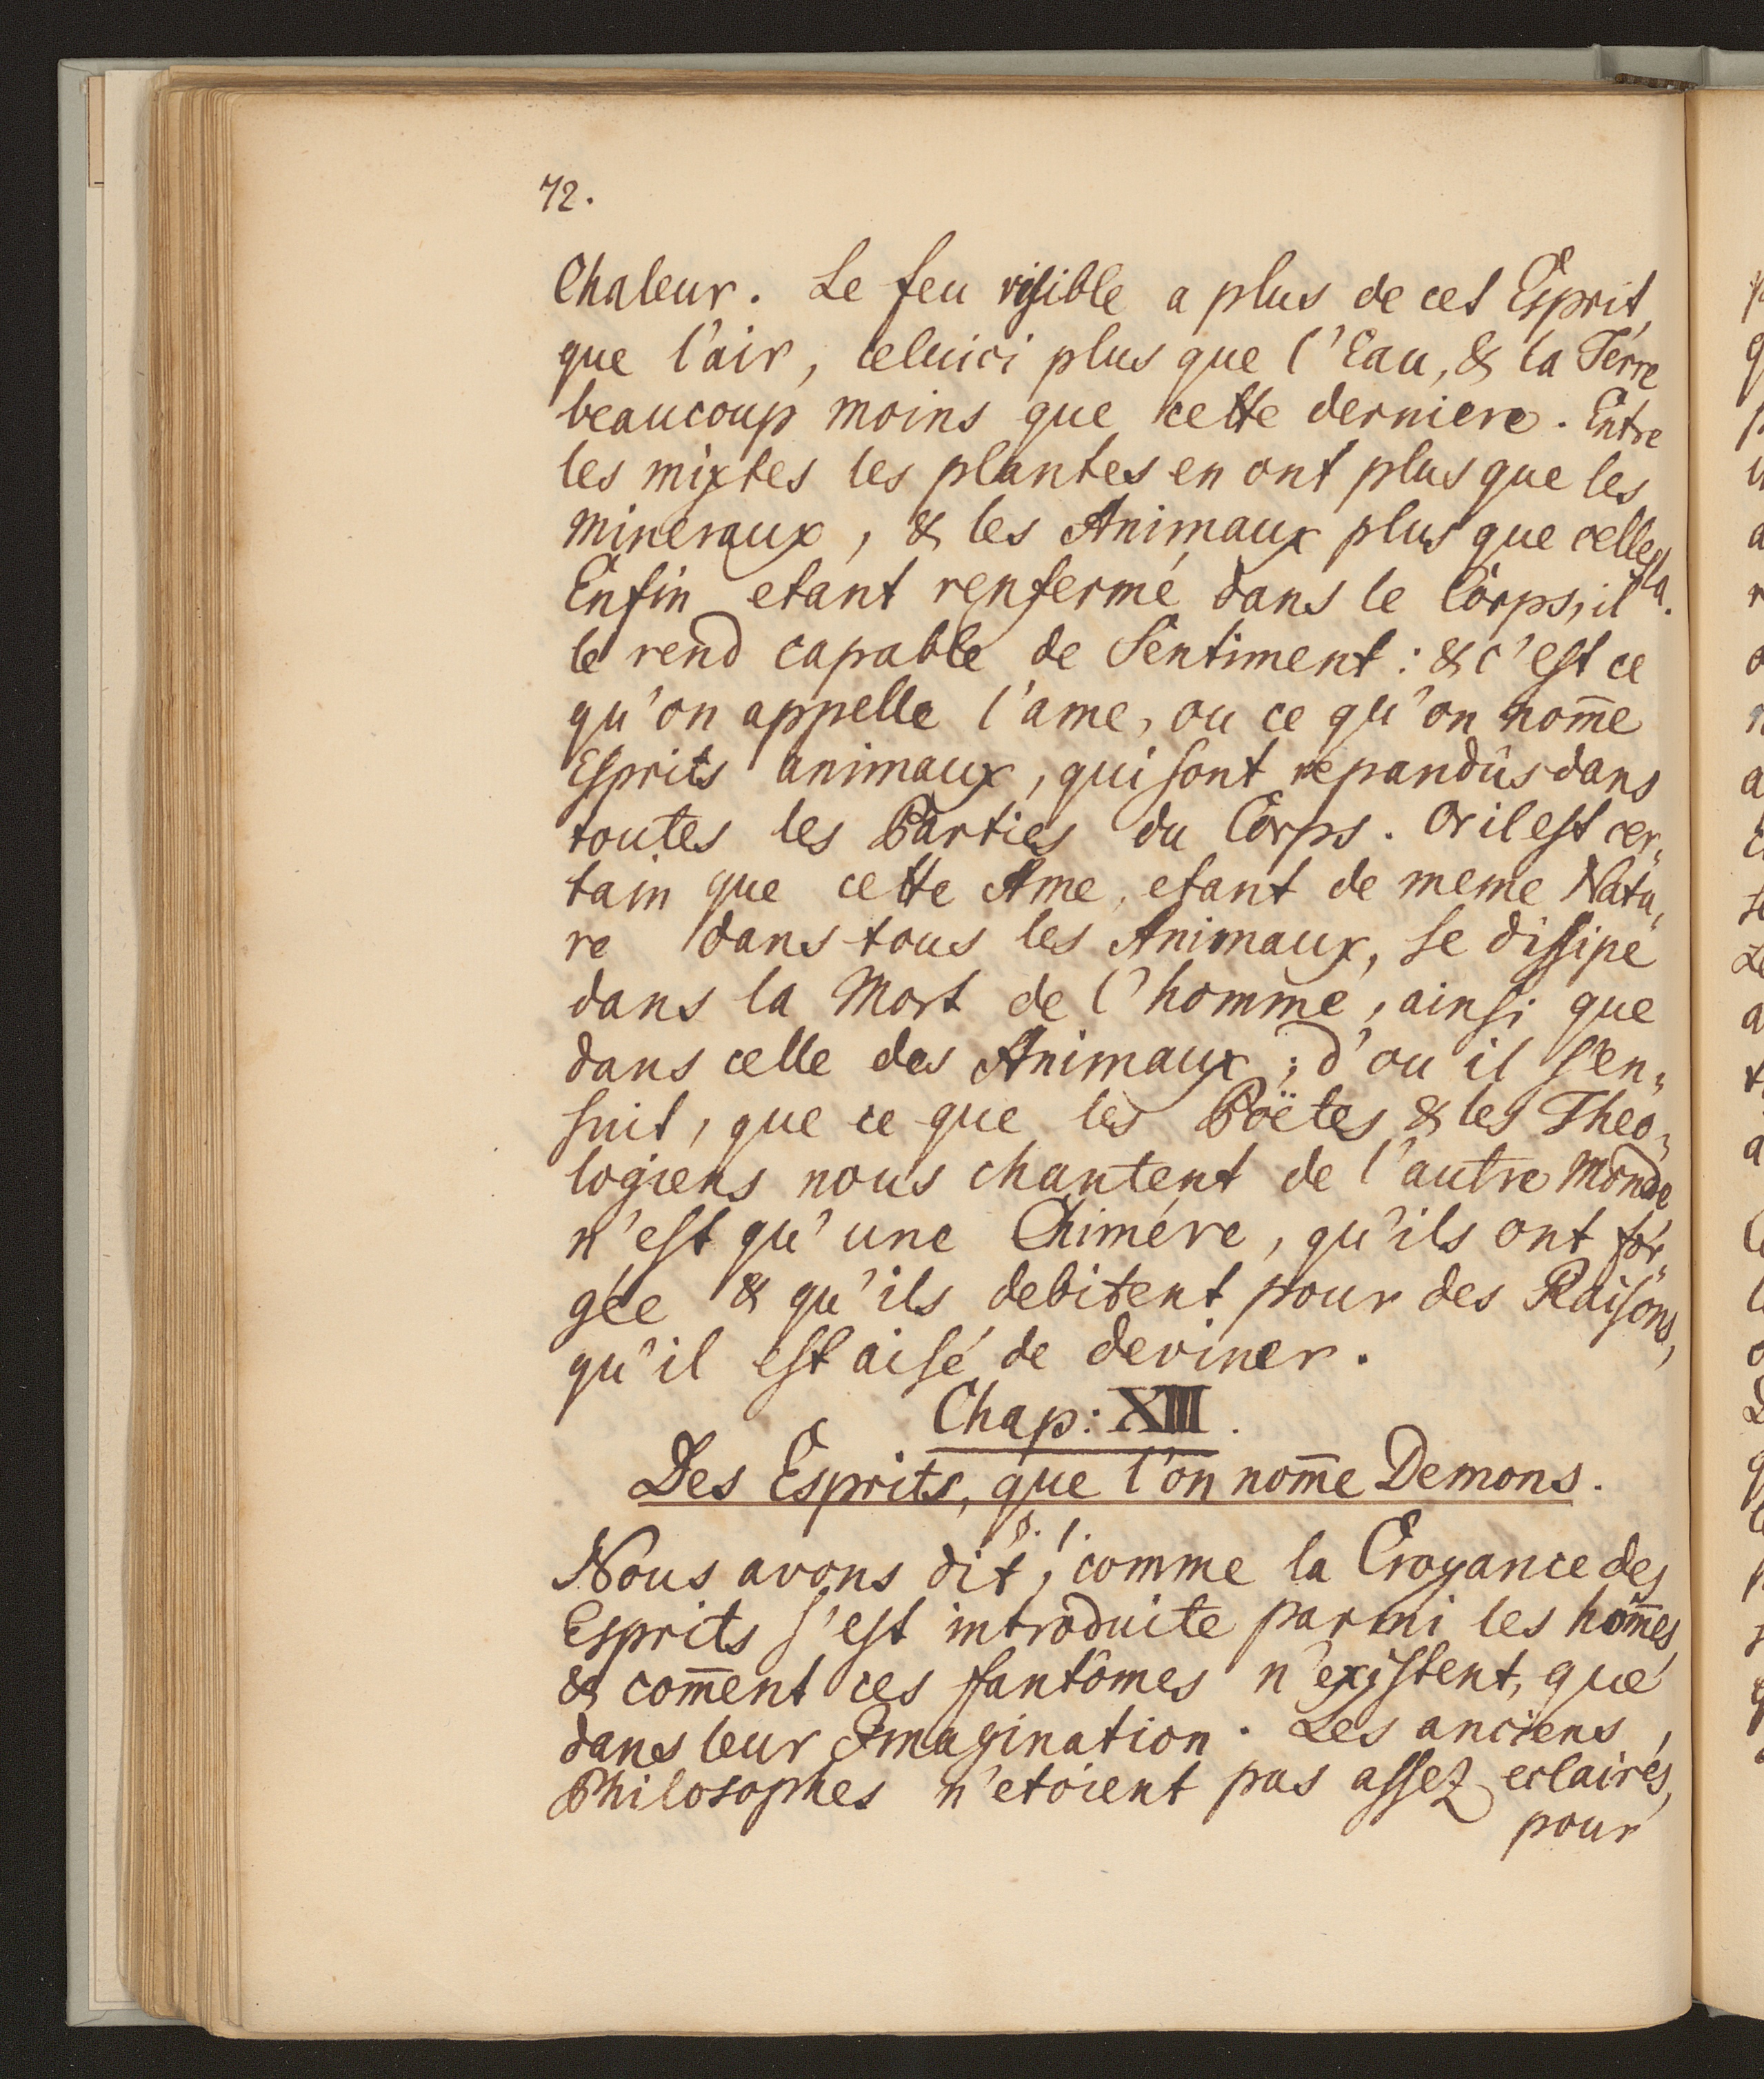 72.
Chaleur. Le feu visible a plus de cet Esprit,
que l'air, celuici plus que l'Eau, & la Terre
beaucoup moins que cette derniere. Entre
les mixtes les plantes en ont plus que les
mineraux, & les Animaux plus que celles la.
Enfin etant renfermé dans le Corps, il
le rend capable de Sentiment: & c'est ce
qu'on appelle l'ame, ou ce qu'on nom̄e
Esprits animaux, qui sont répandûs dans
toutes les Parties du Corps. Or il est cer„
tain que cette Ame, etant de meme Natu„
re dans tous les Animaux, se dissipe
dans la Mort de l'homme, ainsi que
dans celle des Animaux; d'ou il s'en„
suit, que ce que les Poëtes & les Theo„
logiens nous chantent de l'autre Monde
n'est qu'une Chimére, qu'ils ont for„
gée & qu'ils debitent pour des Raisons,
qu'il est aisé de deviner.
Chap: XIII.
Des Esprits, que l'on nom̄e Demons.
§. 1.
Nous avons dit, comme la Croyance des
Esprits s'est introduite parmi les hom̄es
& com̄ent ces fantômes n'existent, que
dans leur Imagination. Les anciens
Philosophes n'etoient pas assez eclairés,
pour